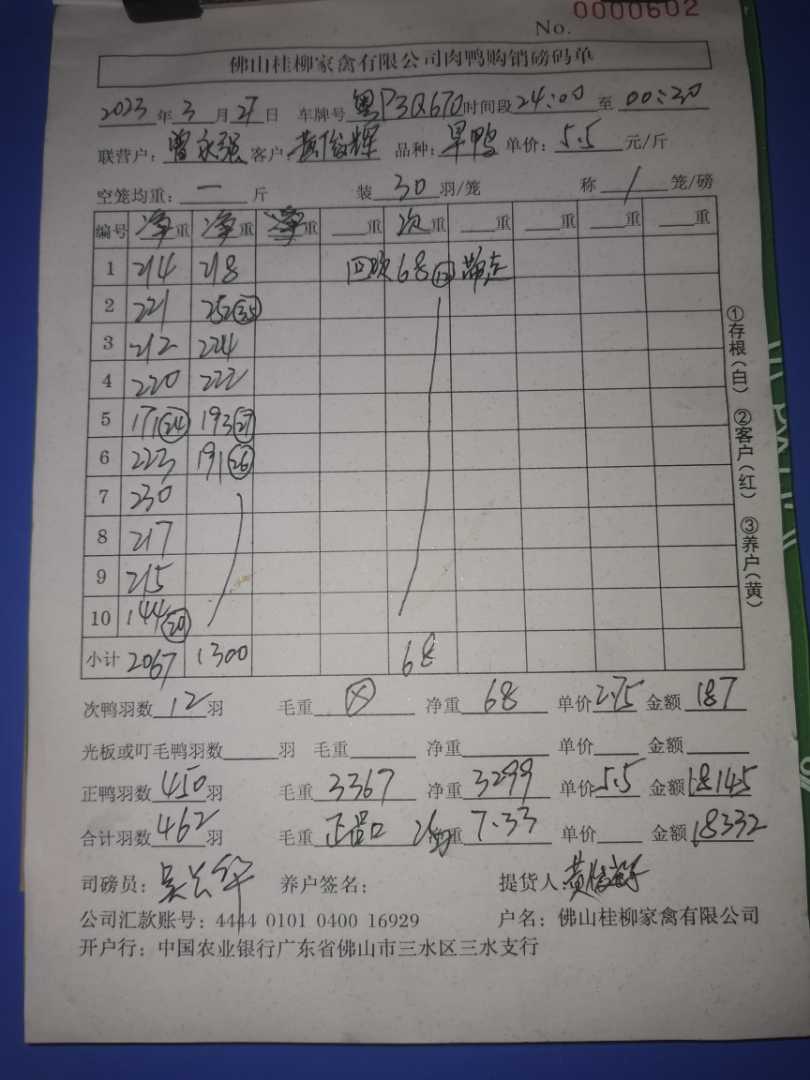 No. 0000602
佛山桂柳家禽有限公司肉鸭购销磅码单
2023年3月27日 车牌号粤P3Q670时间段24:00至00:30
联营户:曾永强 客户:黄俊辉 品种:旱鸭 单价:5.5元/斤
空笼均重:一斤 装30羽/笼 称1笼/磅
编号 净重 净重 重 重 次重 重 重 重 重
1 214 218 回次 68⑫
2 221 252㉟
3 212 224
4 220 222
5 171㉔ 193㉗
6 223 191㉖
7 230
8 217
9 215
10 144⑳
小计 2067 1300 68
①存根(白) ②客户(红) ③养户(黄)
次鸭羽数12羽 毛重 净重68 单价2.75 金额187
光板或叮毛鸭羽数 羽 毛重 净重 单价 金额
正鸭羽数450羽 毛重3367 净重3299 单价5.5 金额18145
合计羽数462羽 毛重 重7.33 单价 金额18332
司磅员: 养户签名: 提货人黄俊辉
公司汇款账号:4444 0101 0400 16929 户名:佛山桂柳家禽有限公司
开户行:中国农业银行广东省佛山市三水区三水支行